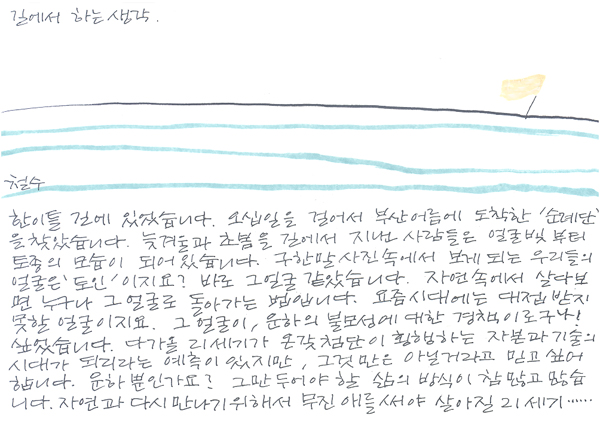 길에서 하는 생각.
철수
한이틀 길에 있었습니다. 오십일을 걸어서 부산어름에 도착한 '순례단'
을 찾았습니다. 늦겨울과 초봄을 길에서 지낸 사람들은 얼굴빛부터
토종의 모습이 되어 있습니다. 구한말 사진속에서 보게 되는 우리들의
얼굴은 '토인' 이지요? 바로 그얼굴 같았습니다. 자연속에서 살다보
면 누구나 그 얼굴로 돌아가는 법입니다. 요즘시대에는 대접 받지
못할 얼굴이지요. 그 얼굴이, 운하의 불모성에 대한 경책이로구나!
싶었습니다. 다가올 21세기가 온갖 첨단이 횡행하는 자본과 기술의
시대가 되리라는 예측이 있지만, 그것만은 아닐거라고 믿고 싶어
합니다. 운하 뿐인가요? 그만두어야 할 삶의 방식이 참 많고 많습
니다. 자연과 다시 만나기 위해서 무진 애를 써야 살아질 21세기......